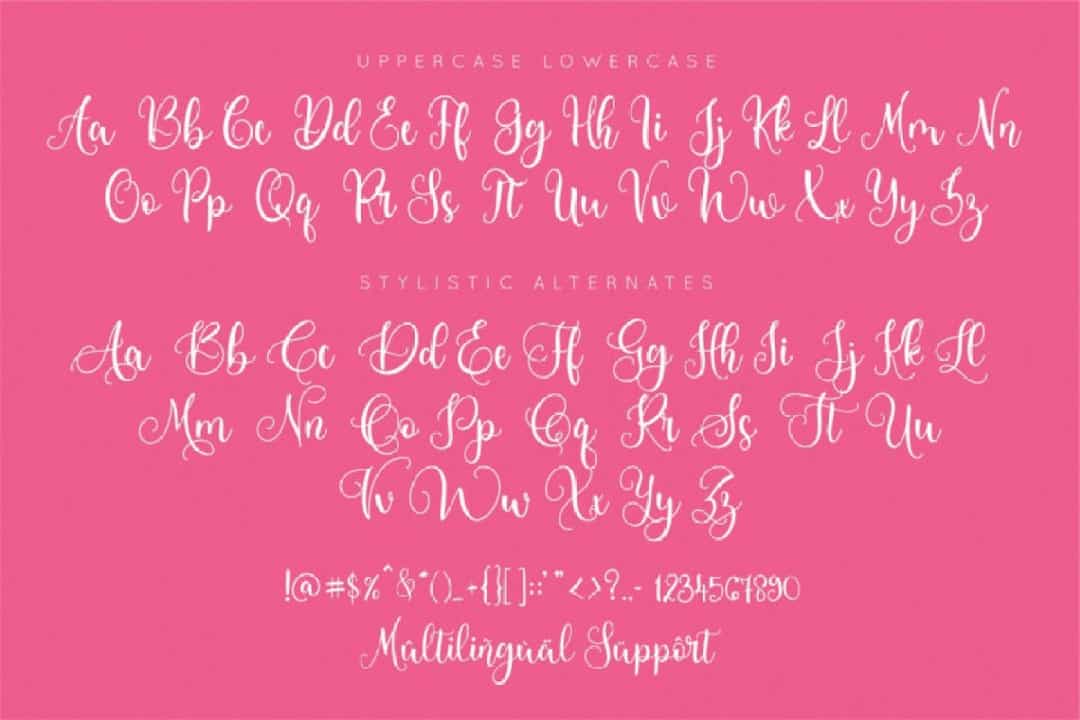 UPPERCASE LOWERCASE
Aa Bb Cc Dd Ee Ff Gg Hh Ii Jj Kk Ll Mm Nn
Oo Pp Qq Rr Ss Tt Uu Vv Ww Xx Yy Zz
STYLISTIC ALTERNATES
Aa Bb Cc Dd Ee Ff Gg Hh Ii Jj Kk Ll
Mm Nn Oo Pp Qq Rr Ss Tt Uu
Vv Ww Xx Yy Zz
!@#$%^&*()_+{}[]:;'"<>?.,- 1234567890
Múltiliñguàl Süppôrt